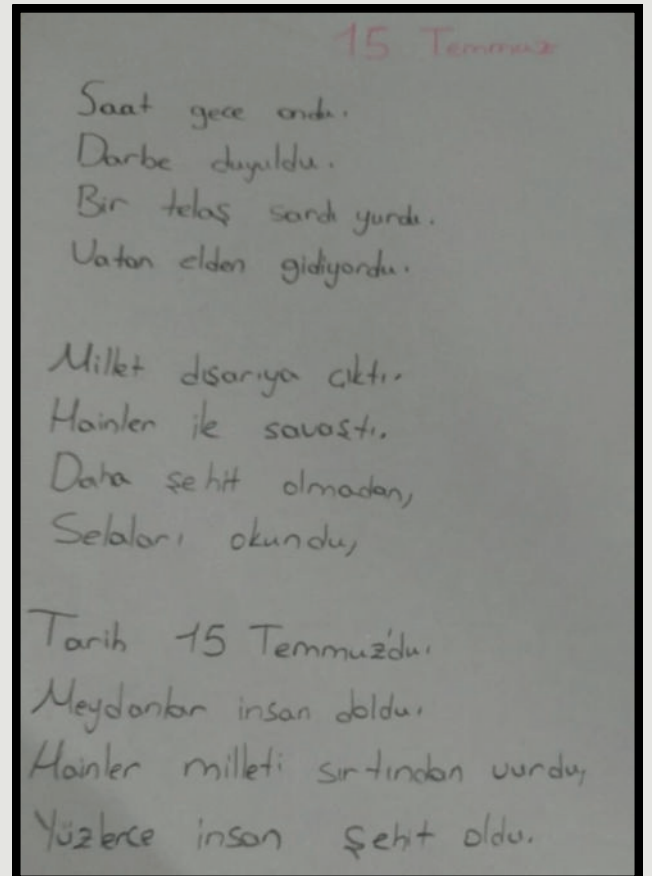 15 Temmuz
Saat gece ondu.
Darbe duyuldu.
Bir telaş sardı yurdu.
Vatan elden gidiyordu.
Millet dışarıya çıktı.
Hainler ile savaştı.
Daha şehit olmadan,
Selaları okundu,
Tarih 15 Temmuz'du.
Meydanlar insan doldu.
Hainler milleti sırtından vurdu,
Yüzlerce insan şehit oldu.